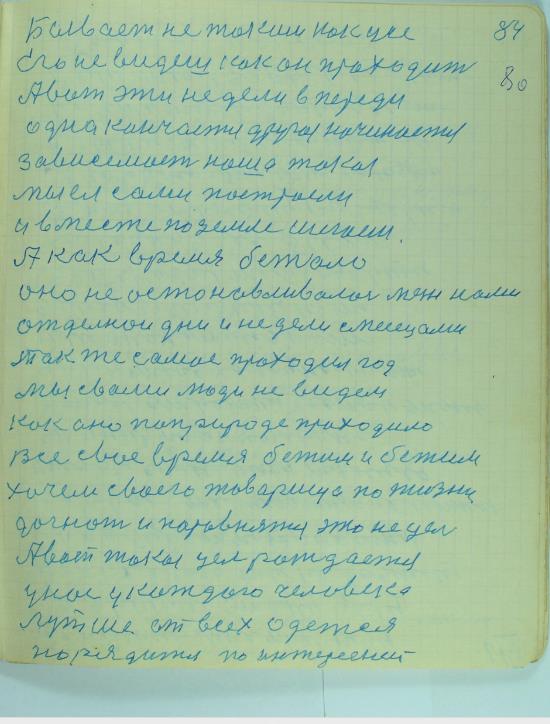 Бываит не таким как уже 84
Его не видеш как он проходит 80
А вот эти недели в переди
одна кончается другая начинается
зависемост наша такая
мы ее сами построели
и вместе по земле шигаем.
А как время бежало
оно не остонавливалос меж нами
отделной дни и недели с месецами
так же самое проходил год
мы с вами люди не видем
как оно поприроде проходило
все свое время бежим и бежим
хочем своего товарища по жизни
догнат и поровнятся это не цел
А вот такая цел рождается
у нас у каждого человека
лутше от всех одется
нарядится по интересней